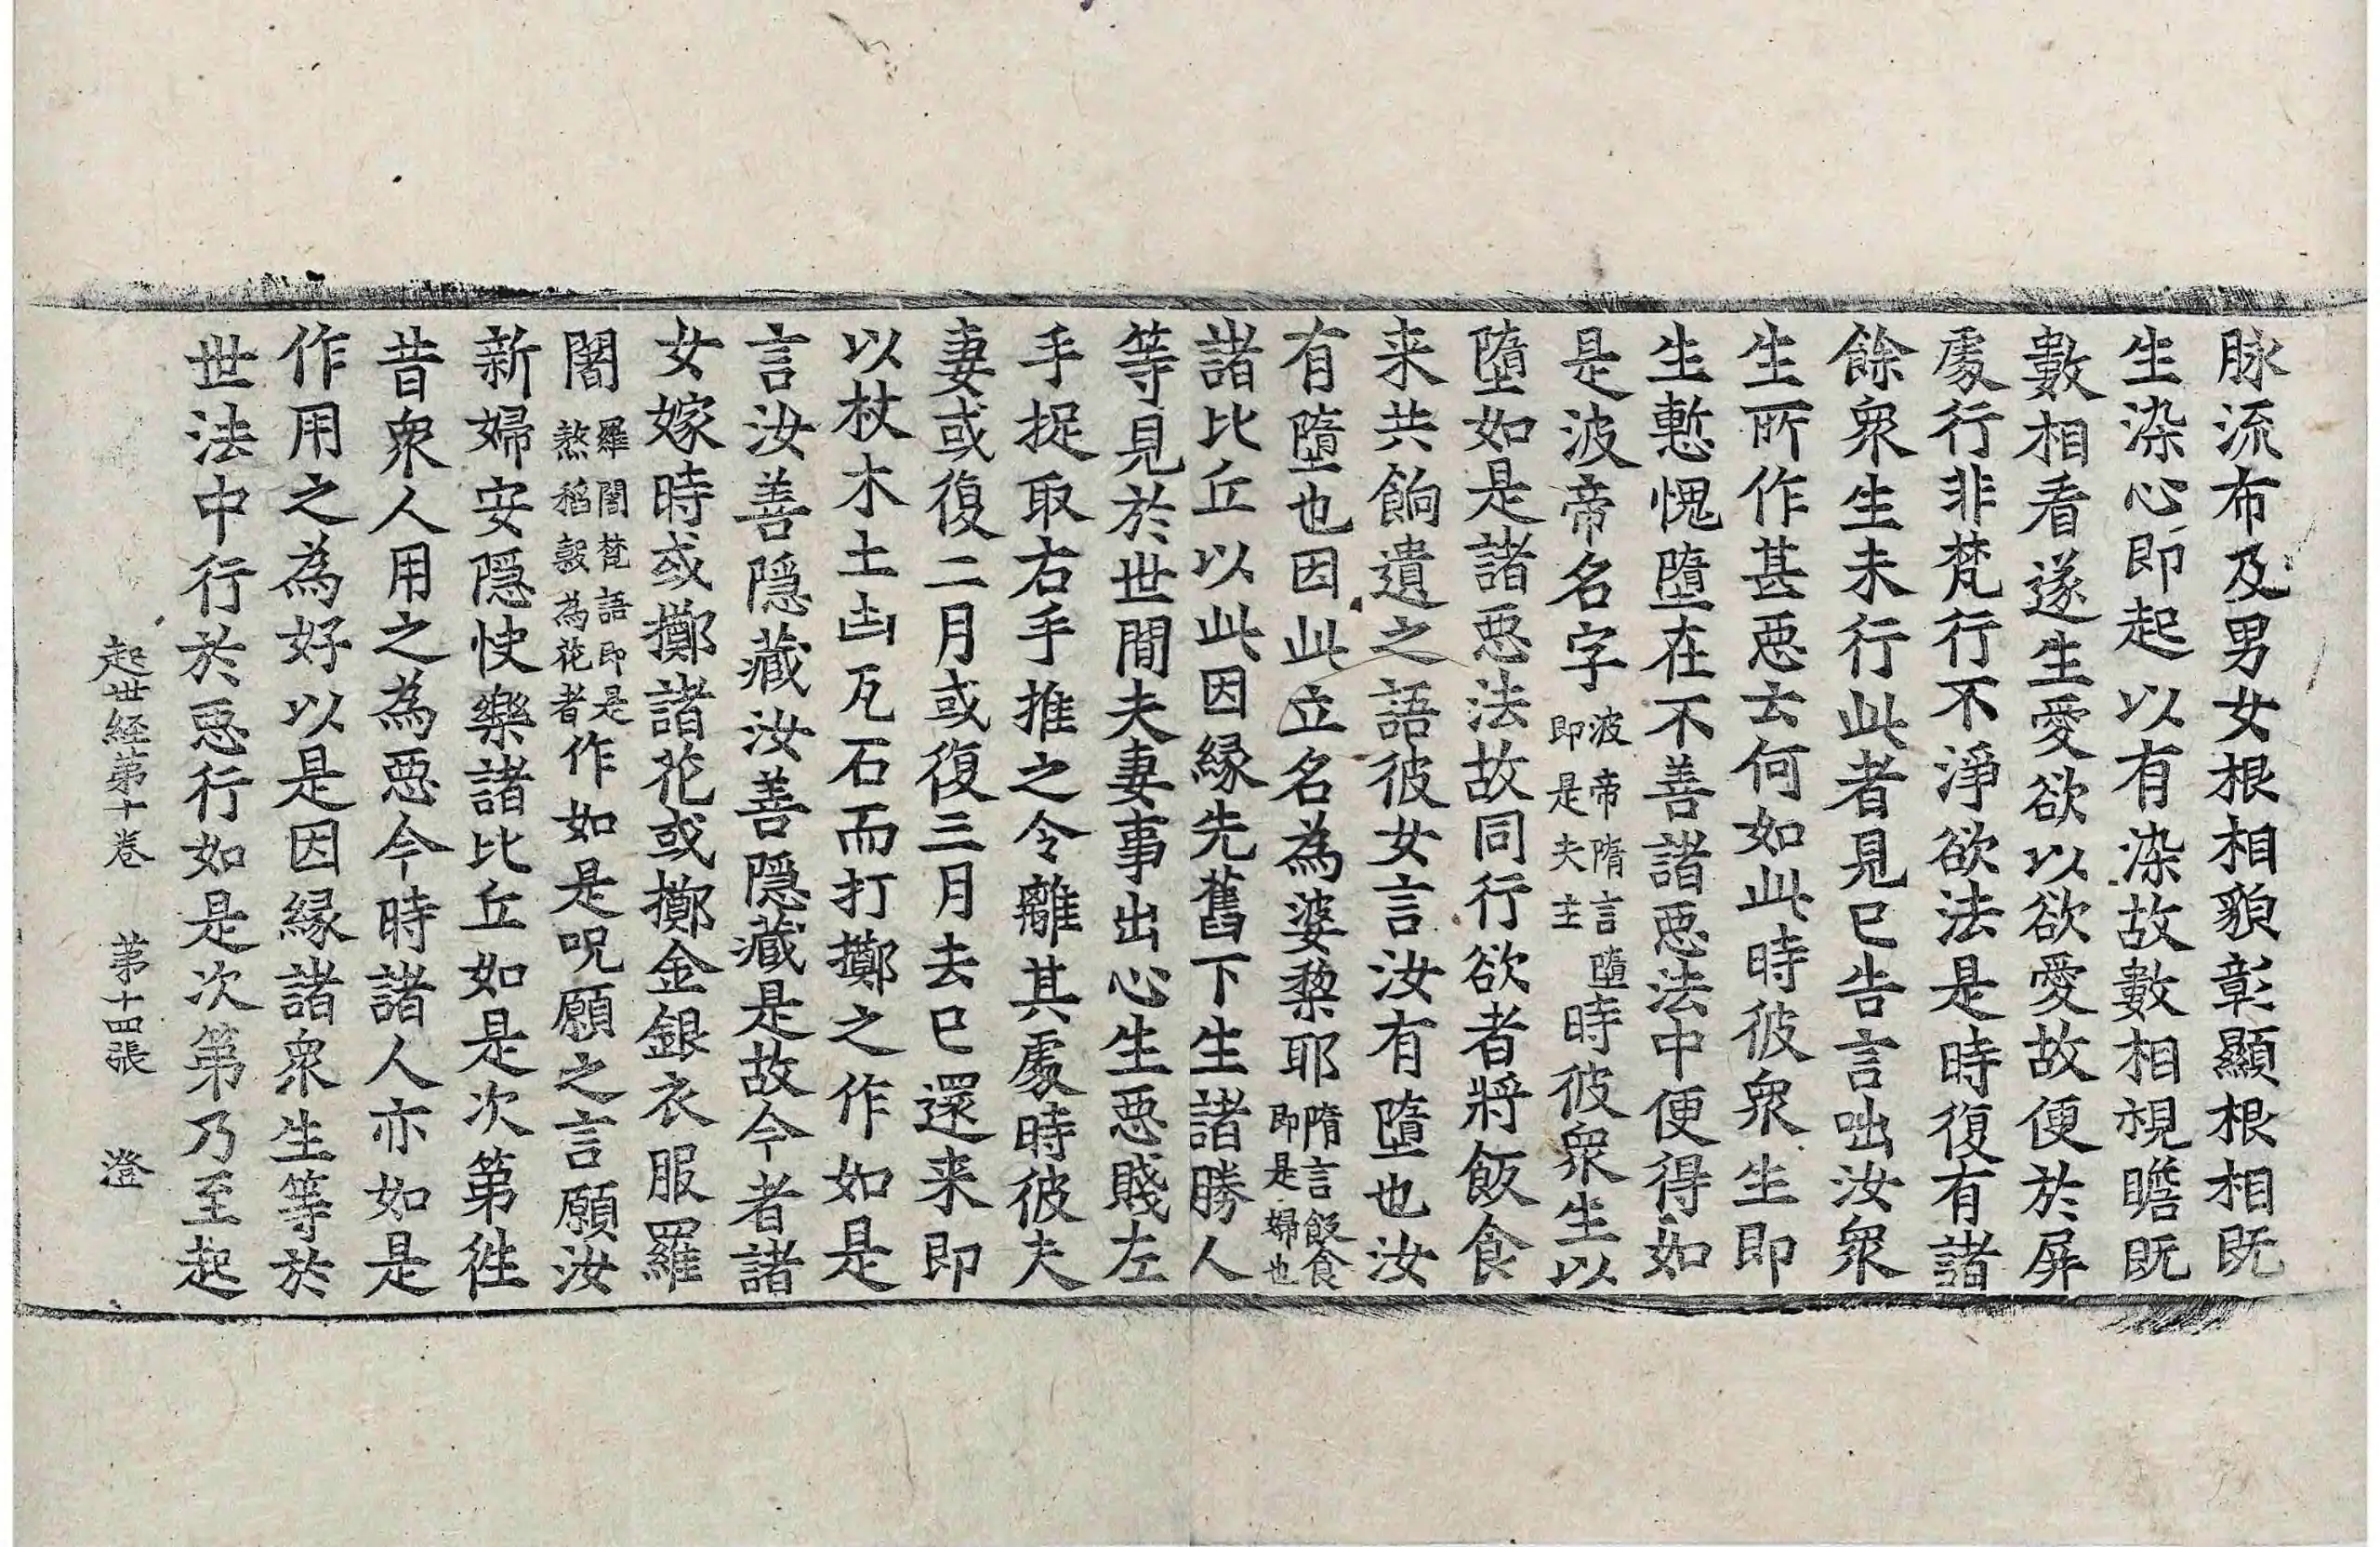 脉流布及男女根相貌彰顯根相既
生染心即起以有染故數相視瞻既
數相看遂生愛欲以欲愛故便於屏
處行非梵行不淨欲法是時復有諸
餘衆生未行此者見已告言咄汝衆
生所作甚惡云何如此時彼衆生即
生慙愧墮在不善諸惡法中便得如
是波帝名字波帝隋言墮即是夫主時彼衆生以
墮如是諸惡法故同行欲者將飯食
来共餉遺之語彼女言汝有墮也汝
有墮也因此立名為婆棃耶隋言飯食即是婦也
諸比丘以此因縁先舊下生諸勝人
等見於世間夫妻事出心生惡賤左
手捉取右手推之令離其處時彼夫
妻或復二月或復三月去已還来即
以杖木土凷瓦石而打擲之作如是
言汝善隱藏汝善隱藏是故今者諸
女嫁時或擲諸花或擲金銀衣服羅
闍羅闍梵語即是熬稻穀為花者作如是呪願之言願汝
新婦安隱快樂諸比丘如是次第徃
昔衆人用之為惡今時諸人亦如是
作用之為好以是因縁諸衆生等於
世法中行於惡行如是次第乃至起
起世経第十卷　第十四張　澄